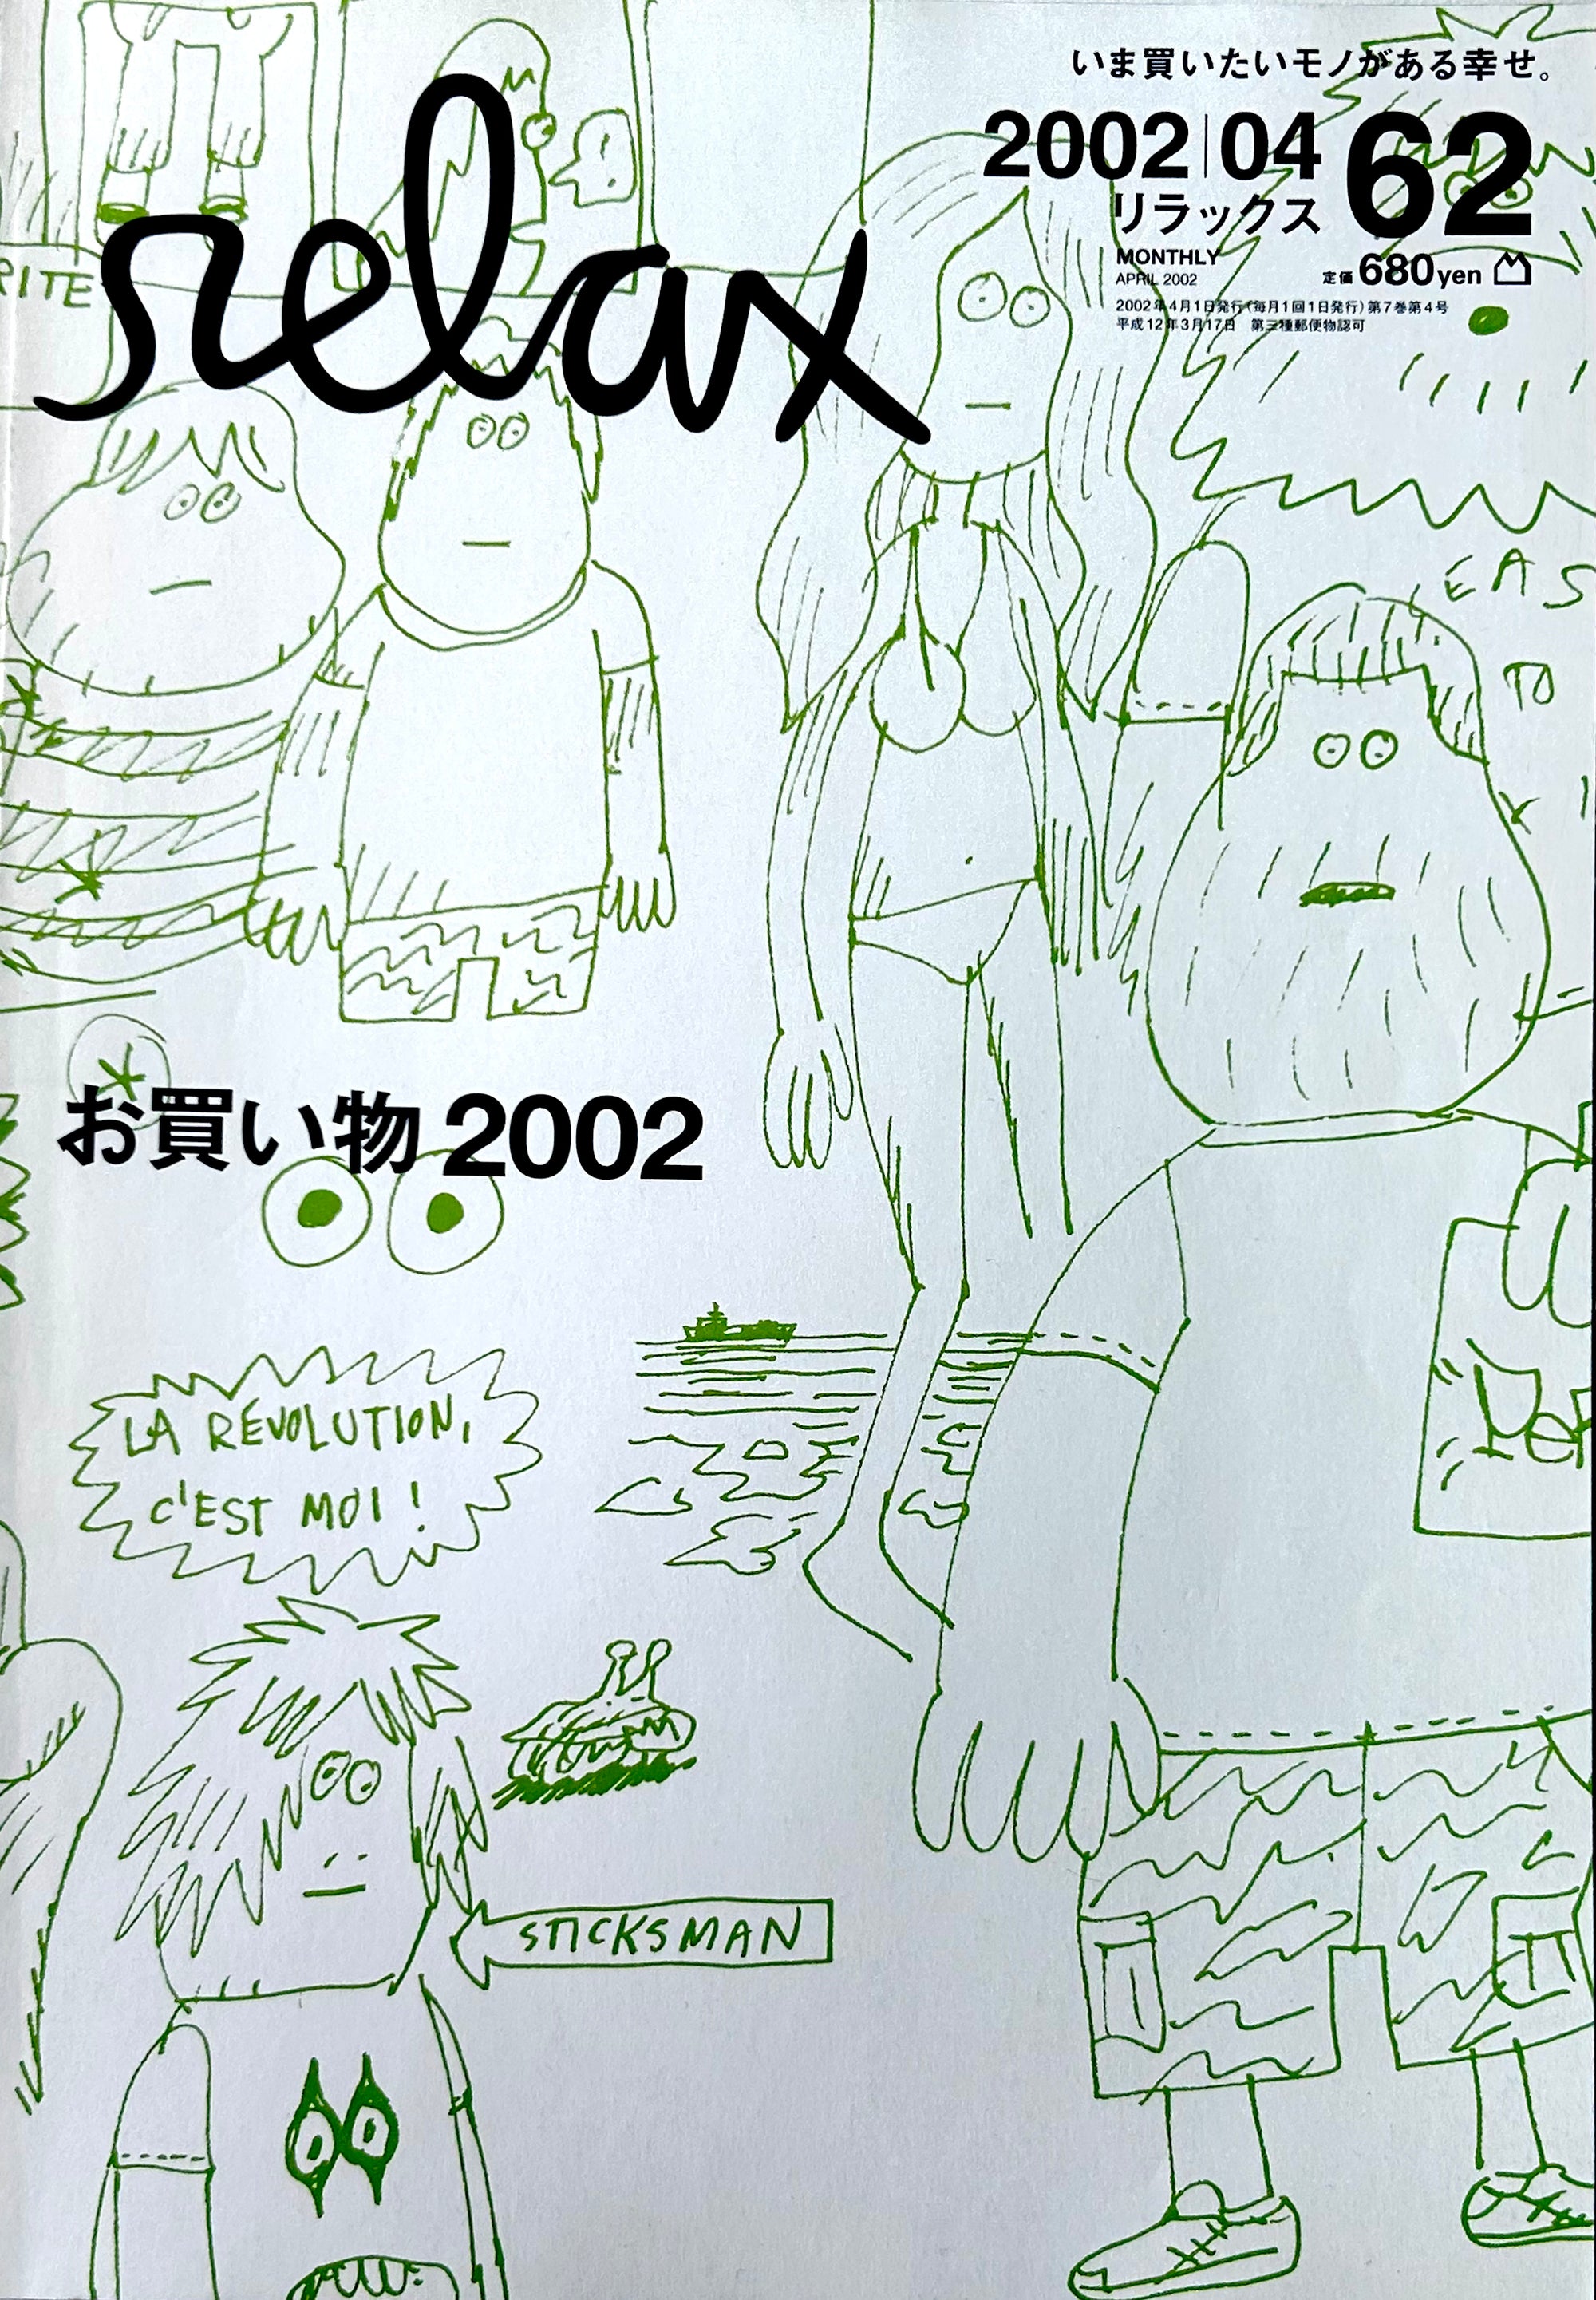 いま買いたいモノがある幸せ。
2002|04 62
リラックス
MONTHLY
APRIL 2002
定価680yen
2002年4月1日発行(毎月1回1日発行)第7巻第4号
平成12年3月17日 第三種郵便物認可
relax
RITE
EAS
TO
お買い物2002
LA RÉVOLUTION,
C'EST MOI!
STICKSMAN